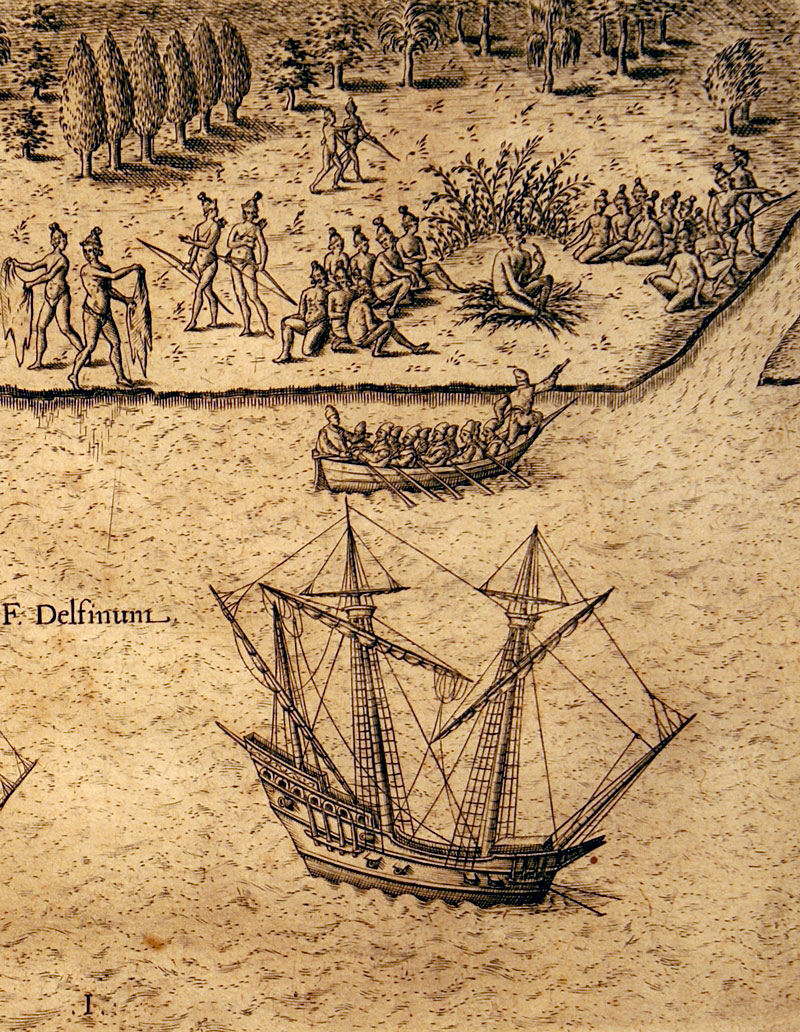 F. Delfinum
I